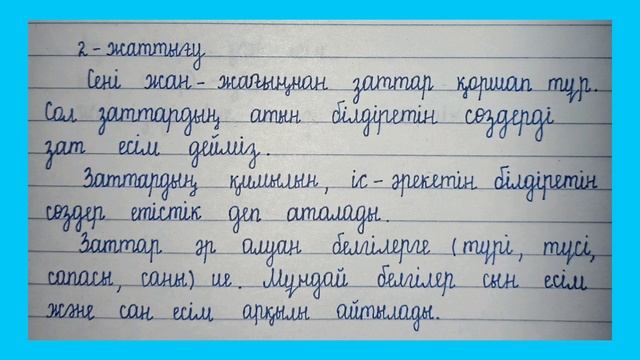 2 - жаттығу
Сені жан - жағыңнан заттар қоршап тұр.
Сол заттардың атын білдіретін сөздерді
зат есім дейміз.
Заттардың қимылын, іс - әрекетін білдіретін
сөздер етістік деп аталады.
Заттар әр алуан белгілерге (түрі, түсі,
сапасы, саны) ие. Мұндай белгілер сын есім
және сан есім арқылы айтылады.